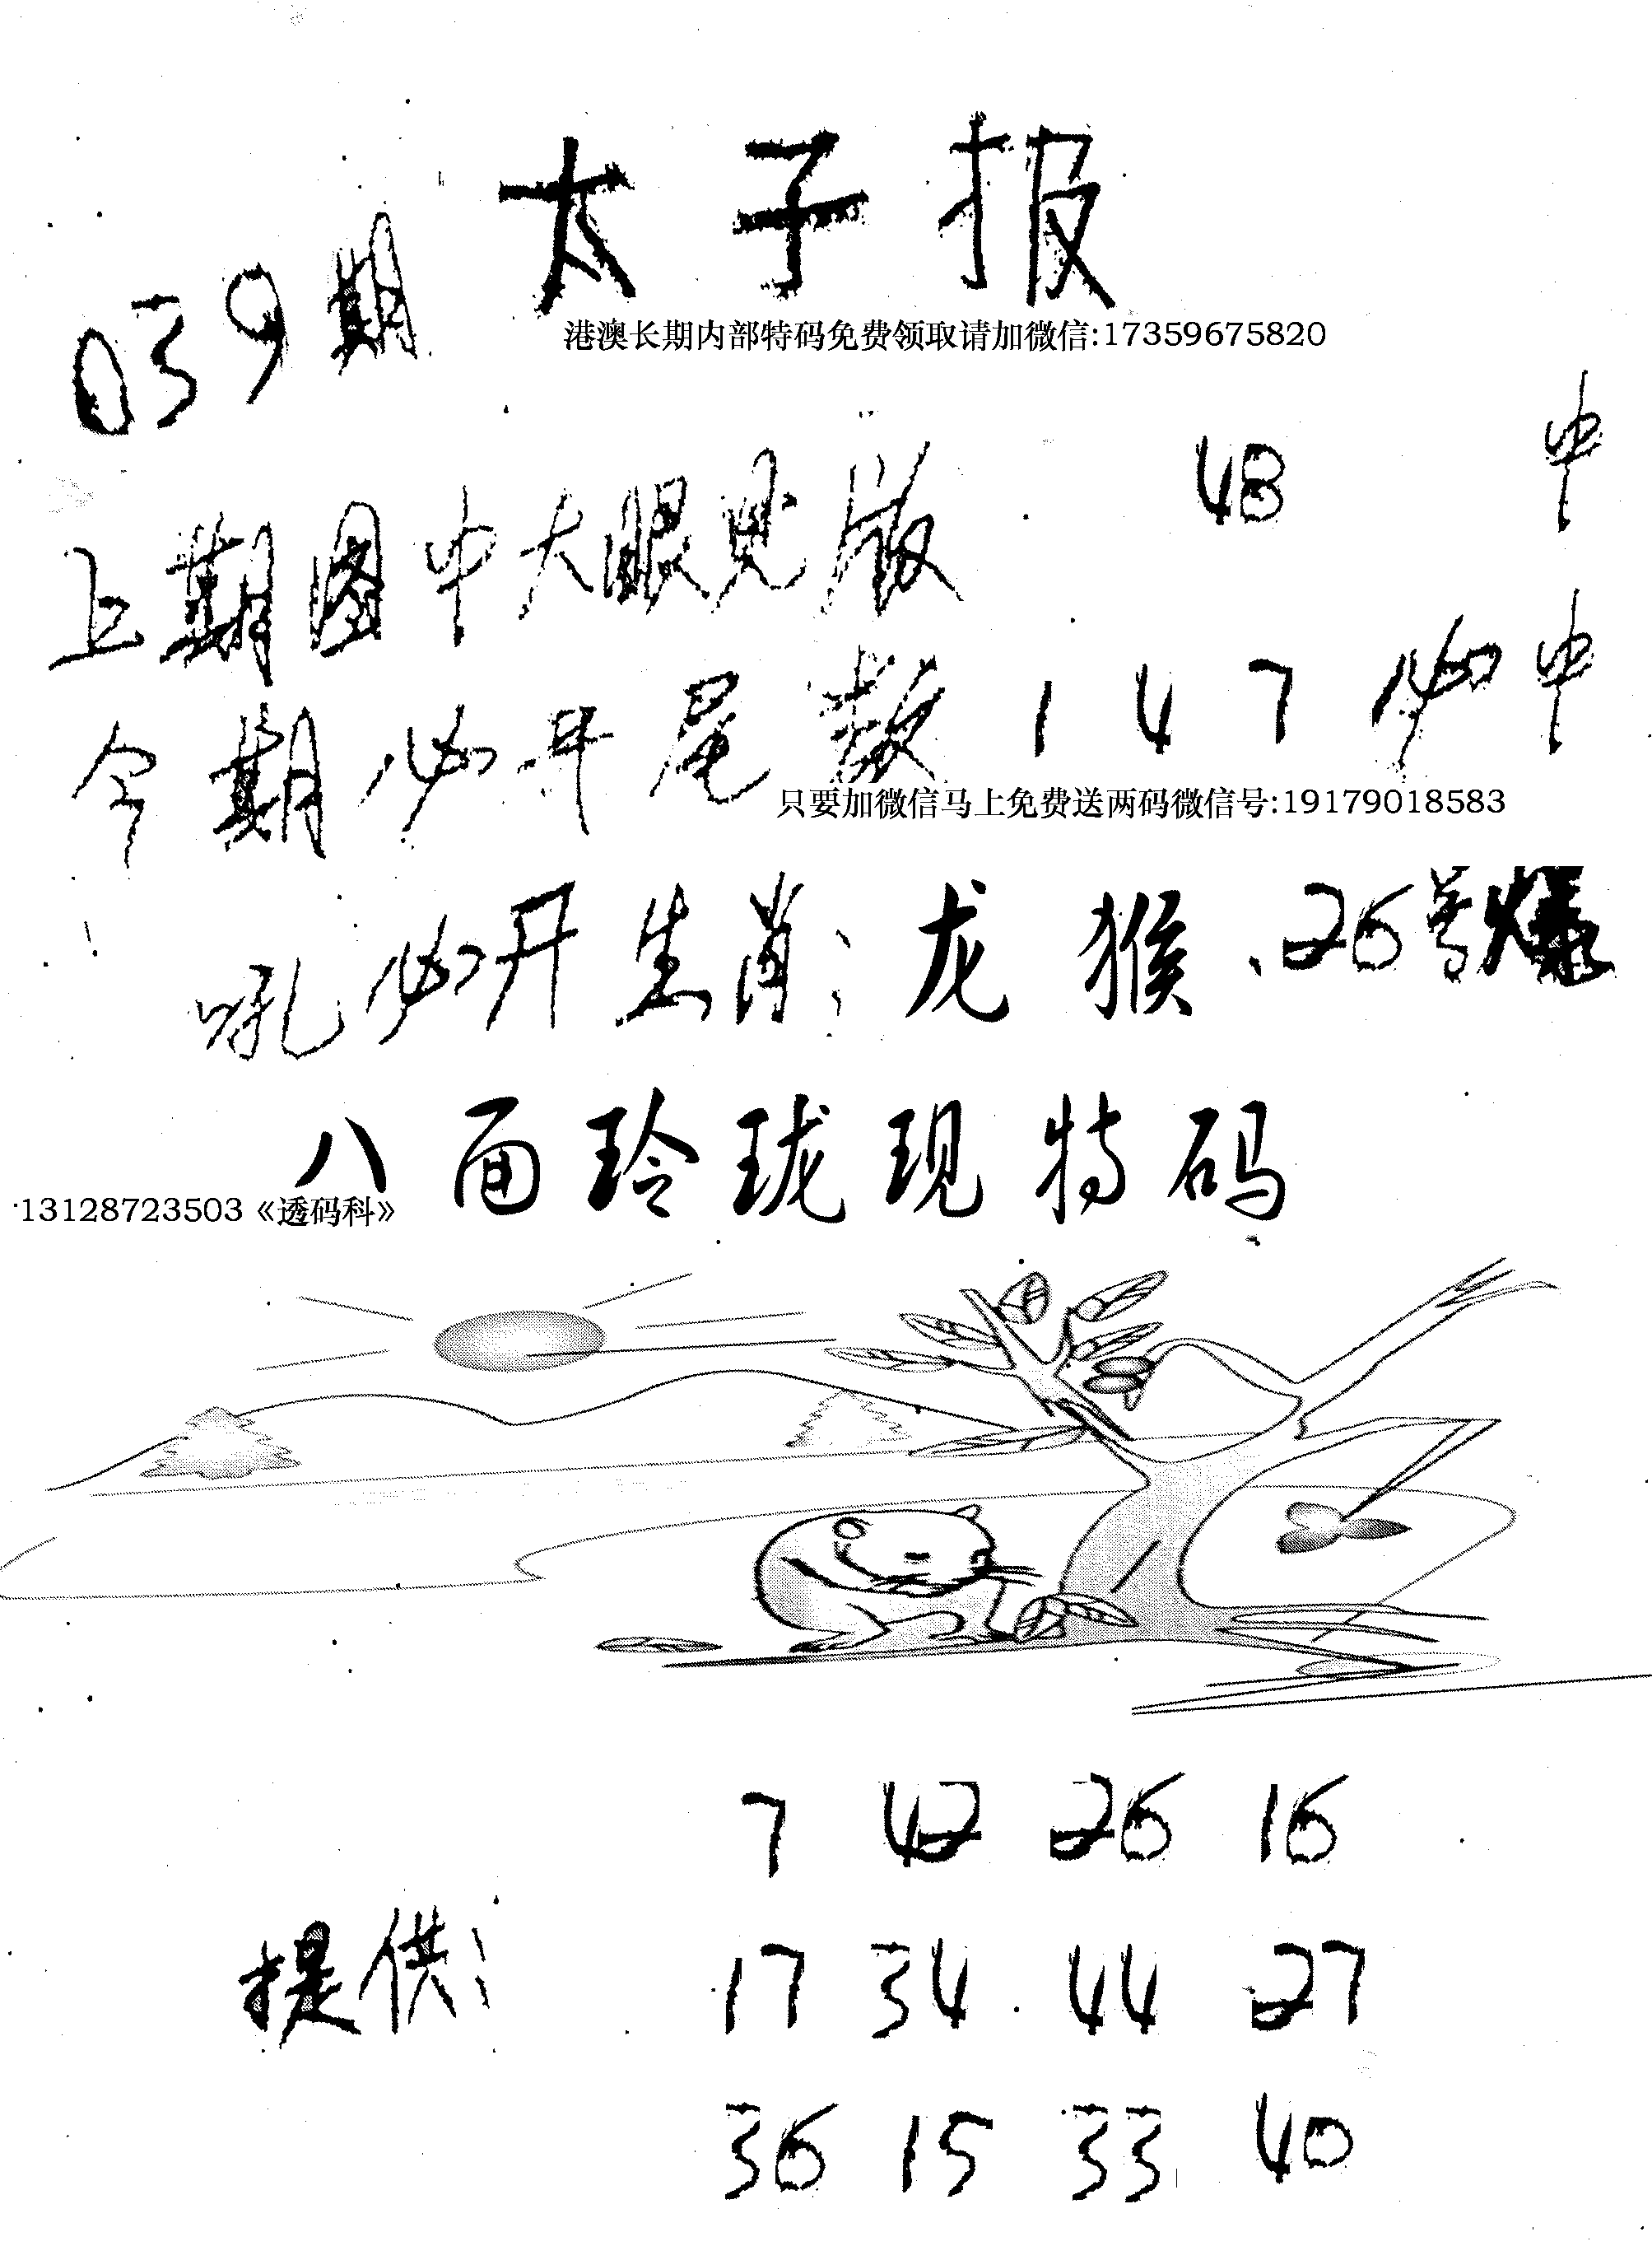 太子报
039期
港澳长期内部特码免费领取请加微信:17359675820
上期图中大眼见版 48 中
今期必开尾数 1 4 7 必中
只要加微信马上免费送两码微信号:19179018583
吼必开生肖: 龙 猴、26号爆
八面玲珑现特码
13128723503《透码科》
7 42 26 16
提供: 17 34 44 27
36 15 33 40